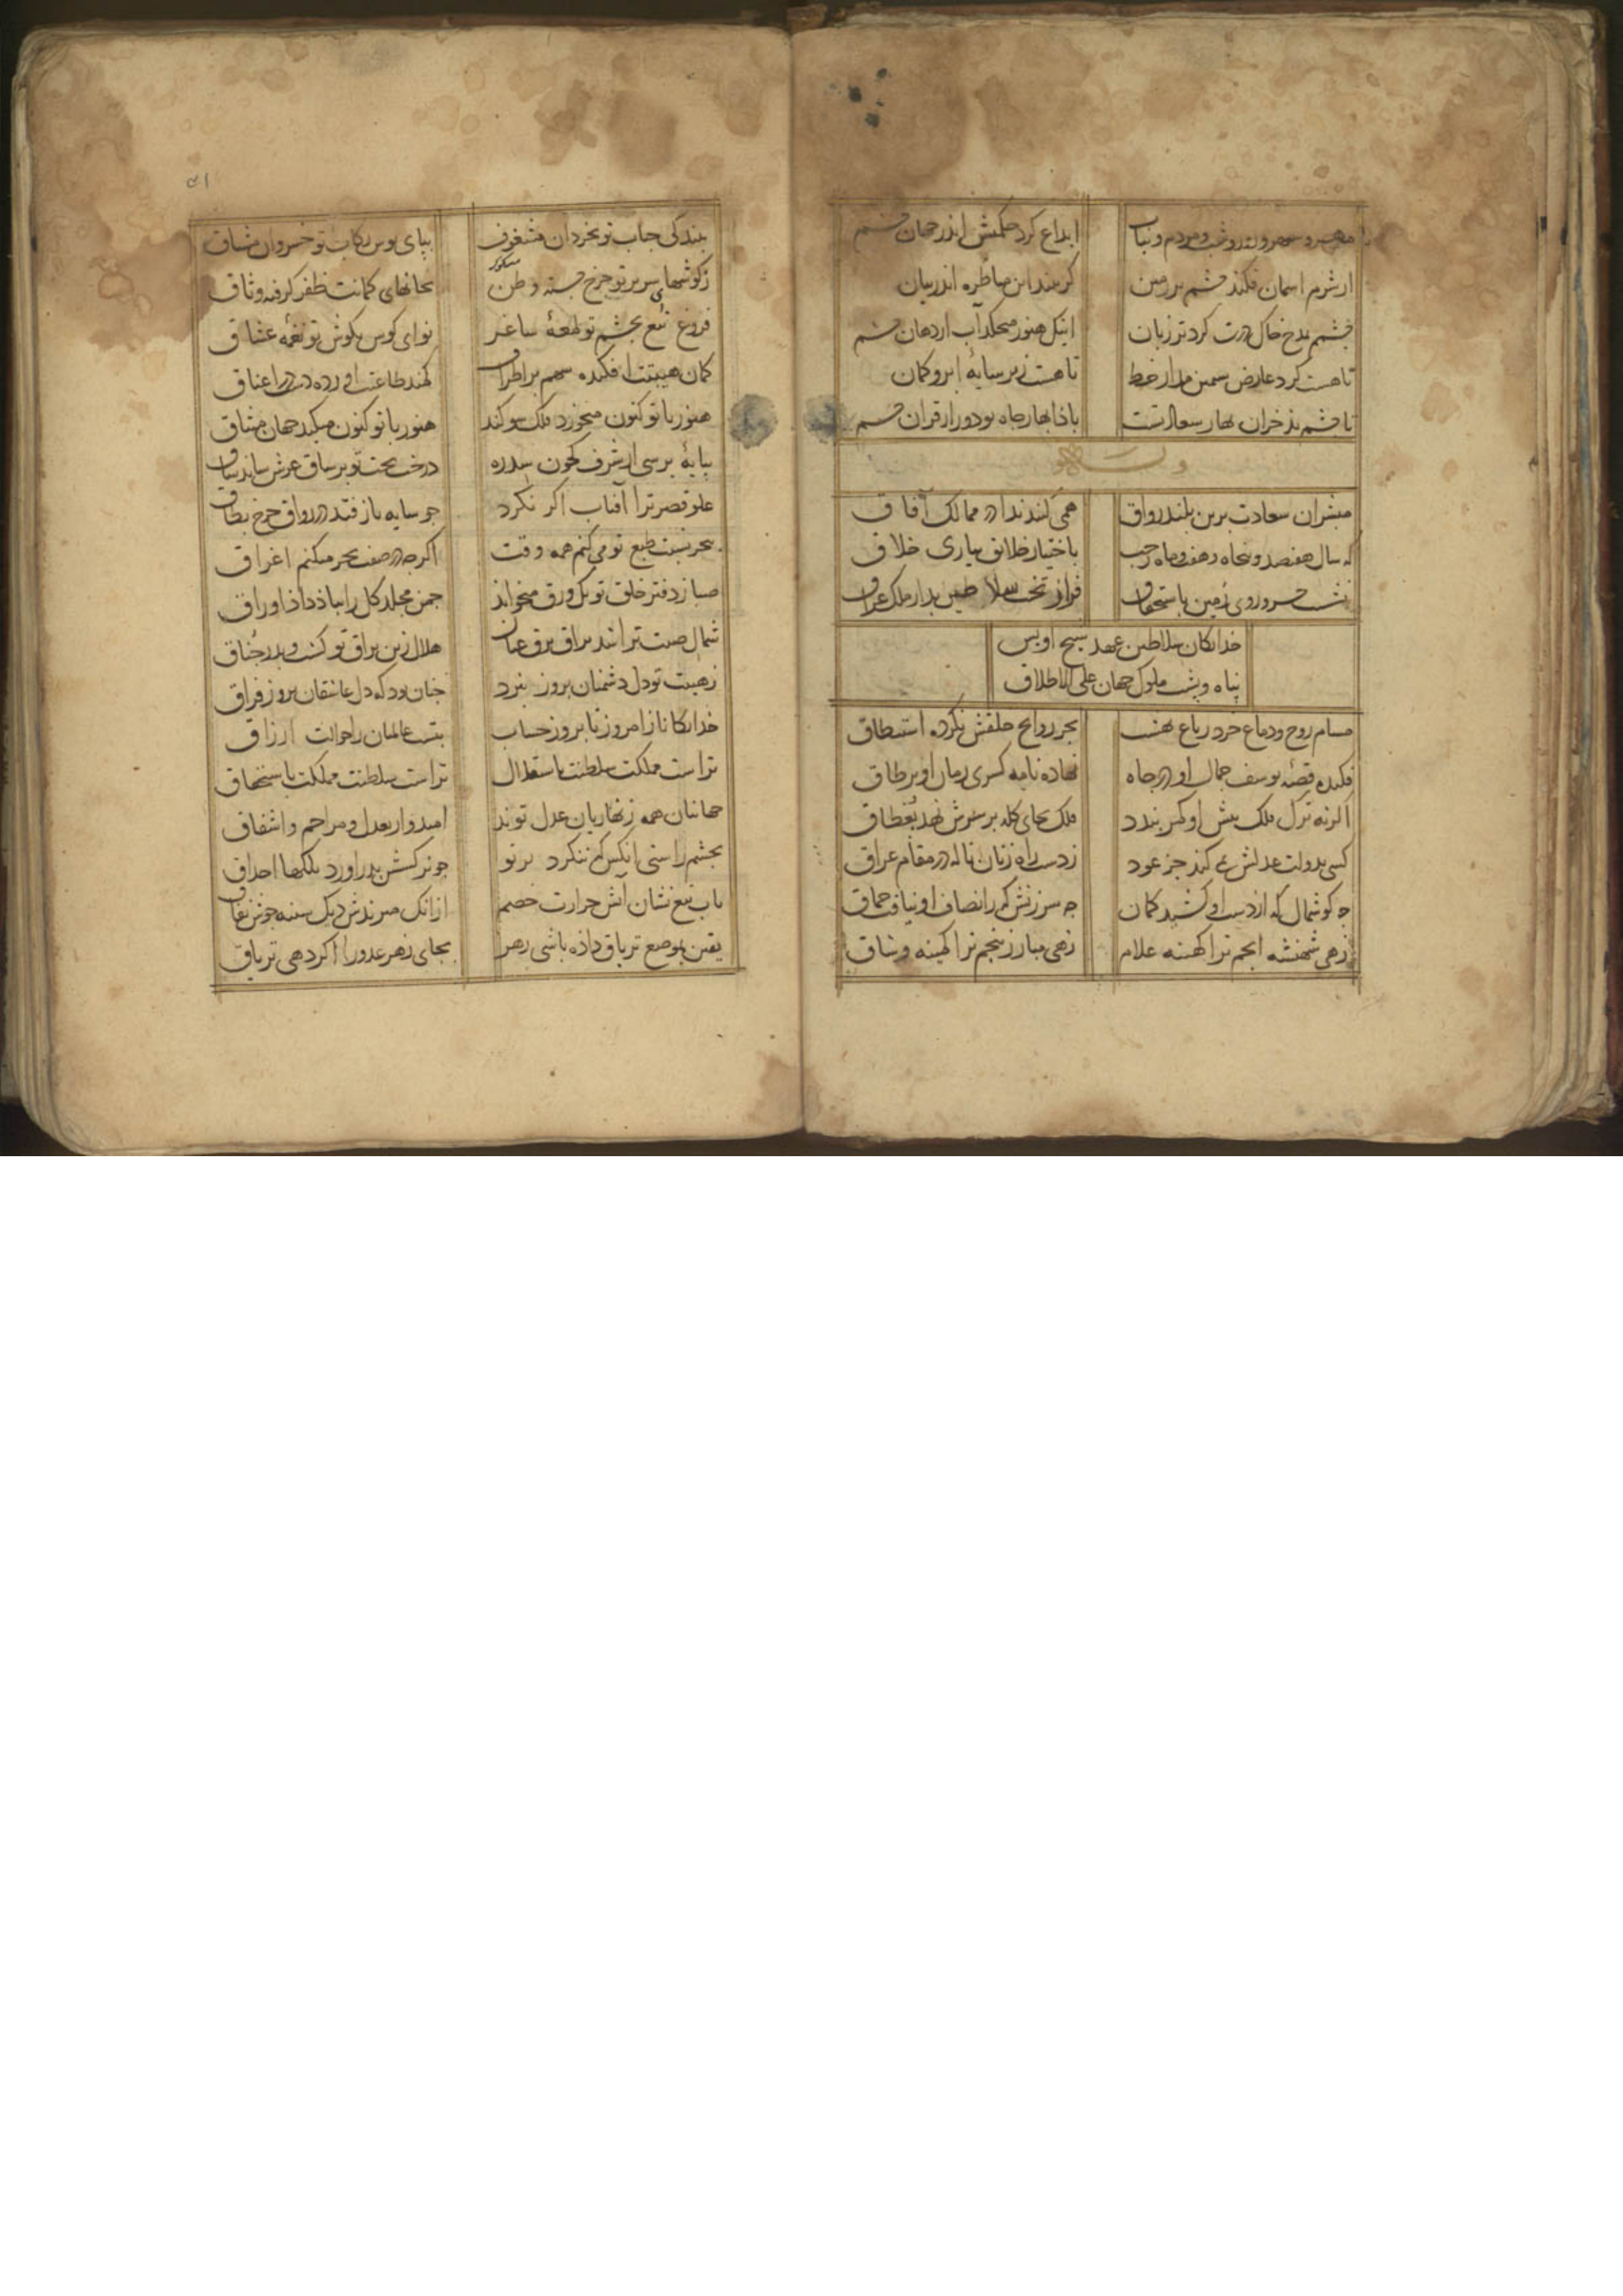 ابداع کرد حکمش اندر جهان چشم
از شرم آسمان فکند چشم بر زمین گر بیند این مناظره اندر بیان
چشمم بدخ خاک درت کرد تر زبان اینک هنوز میچکد آب از دهان چشم
تا هست کرد عارض سیمین مدار خط تا هست زیر سایهٔ ابرو کمان
بهار سعادتت بادا بهار جاه تو دور از قران چشم
وله
مبشران سعادت برین بلند رواق همی کنند ندا در ممالک آفاق
که سال هفصد و پنجاه و هفت و ماه رجب باختیار خلایق بیاری خلاق
نشست خسرو روی زمین باستحقاق فراز تخت سلاطین بدار ملک عراق
خدایکان سلاطین عهد شیخ اویس
پناه و پشت ملوک جهان علی الاطلاق
مشام روح و دماغ خرد ز باغ بهشت بجز روایح خلقش نکرده استنشاق
فکنده قصهٔ یوسف جمال او در چاه نهاده نامهٔ کسری زمان او بر طاق
اگر نه ترک فلک پیش او کمر بندد فلک بجای کله بر سرش نهد بغطاق
کسی بدولت عدلش نمی کند جز عود ز دست راه زنان ناله در مقام عراق
چه گوشمال که از دست او کشید کمان چه سرزنش که ز انصاف او نیافت چماق
زهی شهنشه انجم ترا کهینه غلام زهی مبارز پنجم ترا کهینه وشاق
۵۱
ببندکی جناب تو بخردان مشعوف بپای بوس رکاب تو خسروان مشتاق
ز گوشهای سریر تو چرخ جسته وطن بخانهای کمانت ظفر گرفته وثاق
فروغ تیغ بچشم تو لمعهٔ ساغر نوای کوس بگوش تو نغمهٔ عشاق
کمان هیبتت افکنده سهم بر اطراف کمند طاعتت آورده دست در اعناق
هنوز با تو کنون میخورد فلک سوگند هنوز با تو کنون میکند جهان میثاق
بپایهٔ برسی از شرف که چون سدره درخت بخت تو بر ساق عرش ساید ساق
علو قصر ترا آفتاب اگر نکرد چو سایه باز فتد در رواق چرخ بطاق
ببحر نسبت طبع تو می کنم همه وقت اگرچه در صفت بحر میکنم اغراق
صبا ز دفتر خلق تو یک ورق میخواند چمن مجلد گل را بباد داد اوراق
شمال صیت ترا شد براق برق عنان هلال زین براق تو گشت و بدر جناق
ز هیبت تو دل دشمنان بروز نبرد چنان بود که دل عاشقان بروز فراق
خدایکانا ز امروز تا بروز حساب بتست عالمیان را حوالت ارزاق
تراست مملکت سلطنت باستقلال تراست سلطنت مملکت باستحقاق
جهانیان همه زنهاریان عدل تو اند امیدوار بعدل و مراحم و اشفاق
بچشم راستی آنکس که ننکرد در تو چو نرکسش بدر آورد ز پلکها احداق
بآب تیغ نشان آتش حرارت خصم
یقین بموضع تریاق داده باشی زهر بجای زهر عدو را اگر دهی تریاق